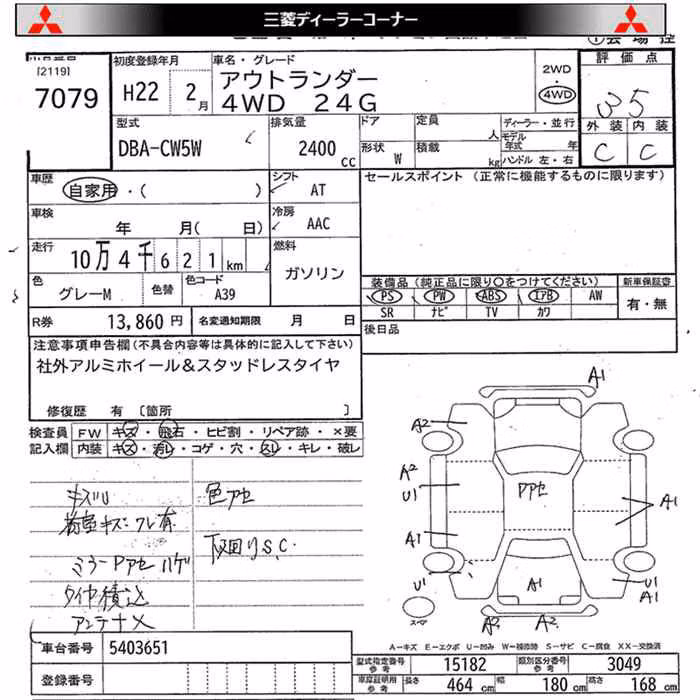 三菱ディーラーコーナー
[2119]
7079
初度登録年月
H22 2月
車名・グレード
アウトランダー
4WD 24G
2WD
・
4WD
評価点
3.5
外装 内装
C C
型式
DBA-CW5W
排気量
2400 cc
ドア
形状 W
定員 人
積載 kg
ディーラー・並行
モデル年式 年式
ハンドル 左・右
車歴
自家用・( )
シフト
AT
セールスポイント (正常に機能するものに限ります)
車検
年 月( 日)
冷房
AAC
走行
10万4千621km
燃料
ガソリン
色
グレーM
色替
色コード
A39
装備品(純正品に限り○をつけてください)
PS PW ABS IアB AW
SR ナビ TV カワ
新車保証書
有・無
R券 13,860円
名変通知期限 月 日
後日品
注意事項申告欄(不具合内容等は具体的に記入して下さい)
社外アルミホイール&スタッドレスタイヤ
修復歴 有 [箇所 ]
検査員 FW キズ・飛石・ヒビ割・リペア跡・×要
記入欄 内装 キズ・汚レ・コゲ・穴・スレ・キレ・破レ
キズU
色アセ
キズ・ワレ有
下回りS.C.
ミラーPアセハゲ
タイヤ積込
アンテナ×
A1
A2
A2
U1
Pアセ
A1
A1
U1
A1
U1
A1
スペア
A2 A2
A―キズ E―エクボ U―凹み W―補修跡 S―サビ C―腐食 XX―交換済
車台番号 5403651
登録番号
型式指定番号 参考 15182
類別区分番号 参考 3049
車庫証明用 参考 長さ 464 cm 幅 180 cm 高さ 168 cm